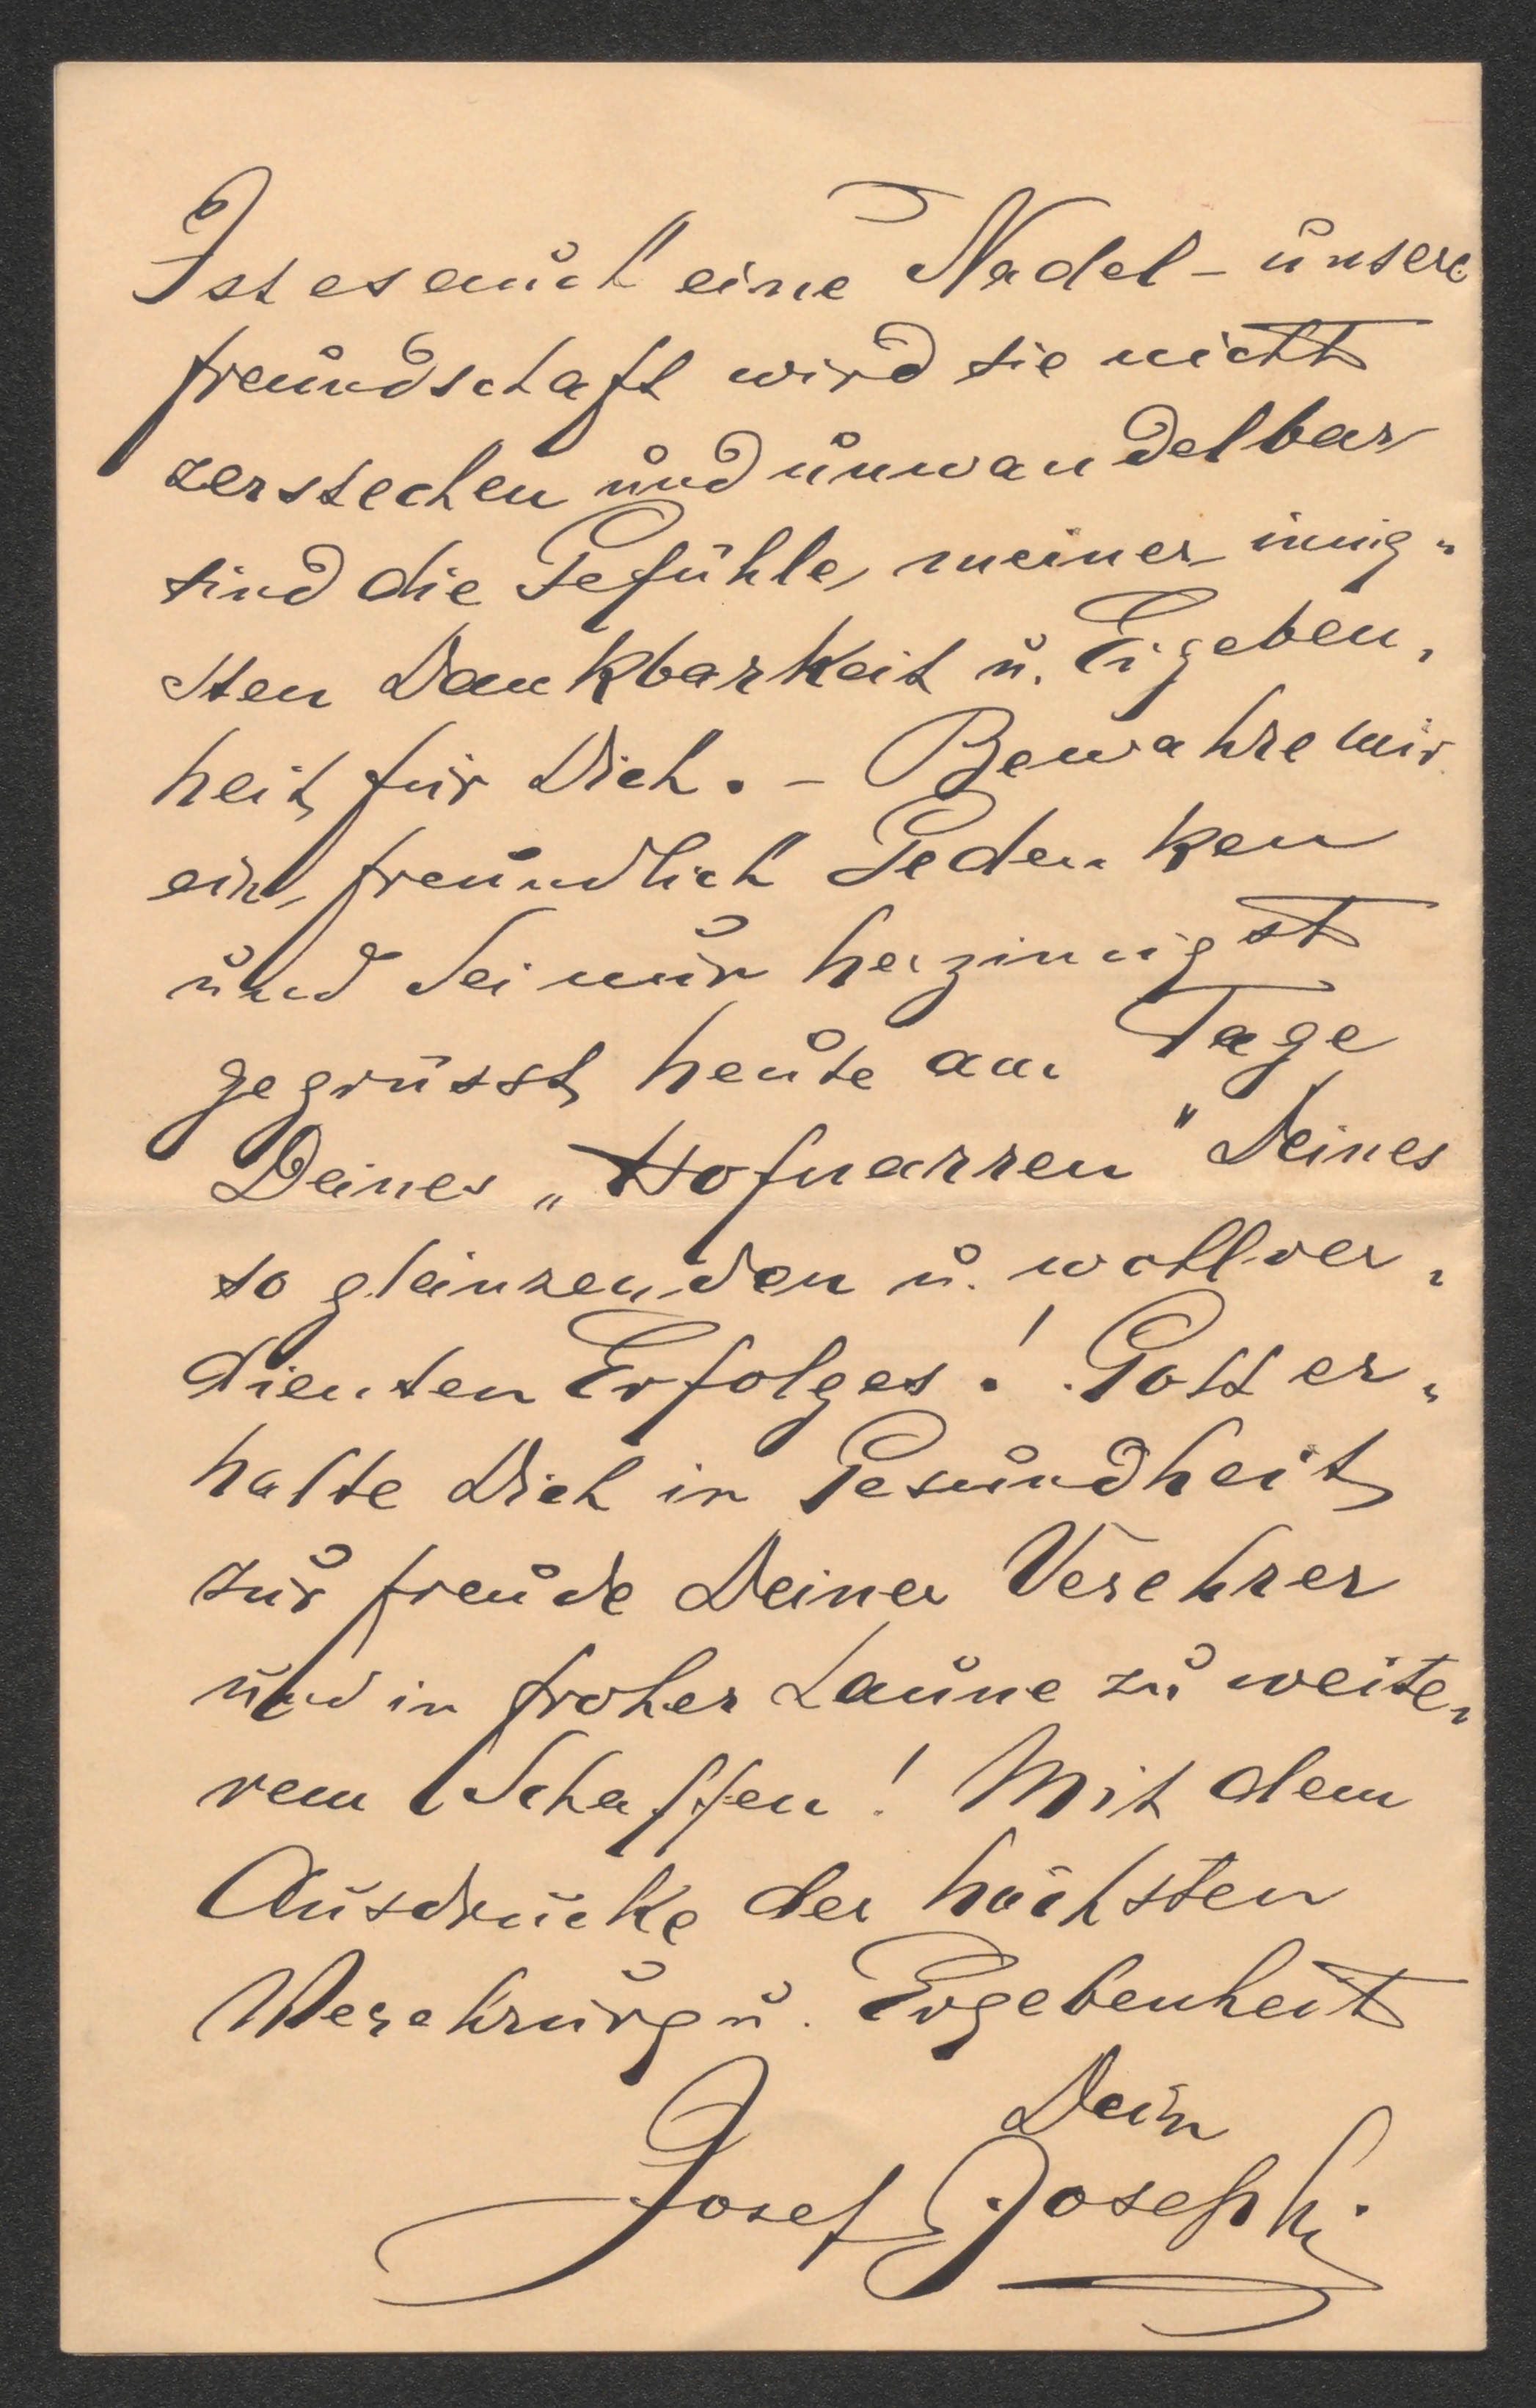 Ist es auch eine Nadel - unsere
freundschaft wird sie nicht
zerstechen und unwandelbar
sind die Gefühle meiner innig„
sten Dankbarkeit u. Ergeben„
heit für Dich. - Bewahre mir
ein freundlich Gedenken
und sei nur herzinnigst
gegrüsst heute am Tage
Deines „Hofnarren" Deines
so glänzenden u. wohlver„
dienten Erfolges! Gott er„
halte Dich in Gesundheit
zur freude Deiner Verehrer
und in froher Laune zu weite„
rem Schaffen! Mit dem
Ausdrucke der höchsten
Verehrung u. Ergebenheit
Dein
Josef Josephi